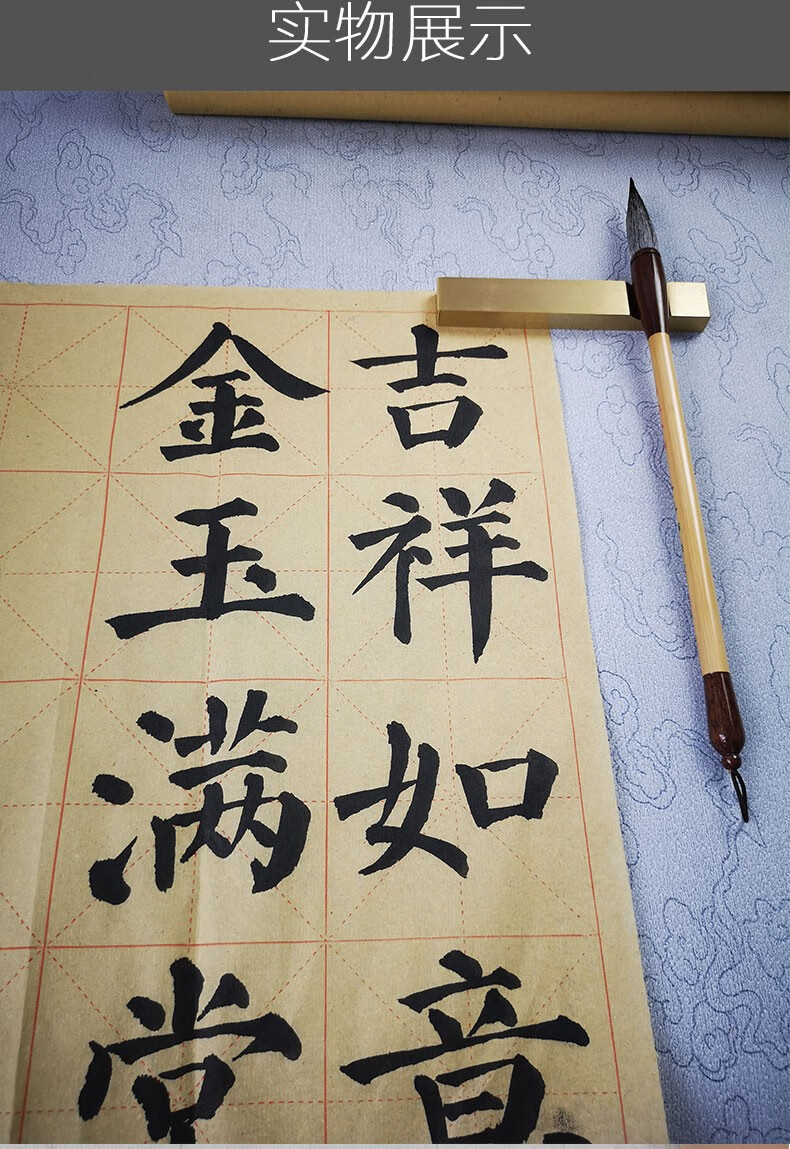 实物展示
吉祥如意
金玉满堂